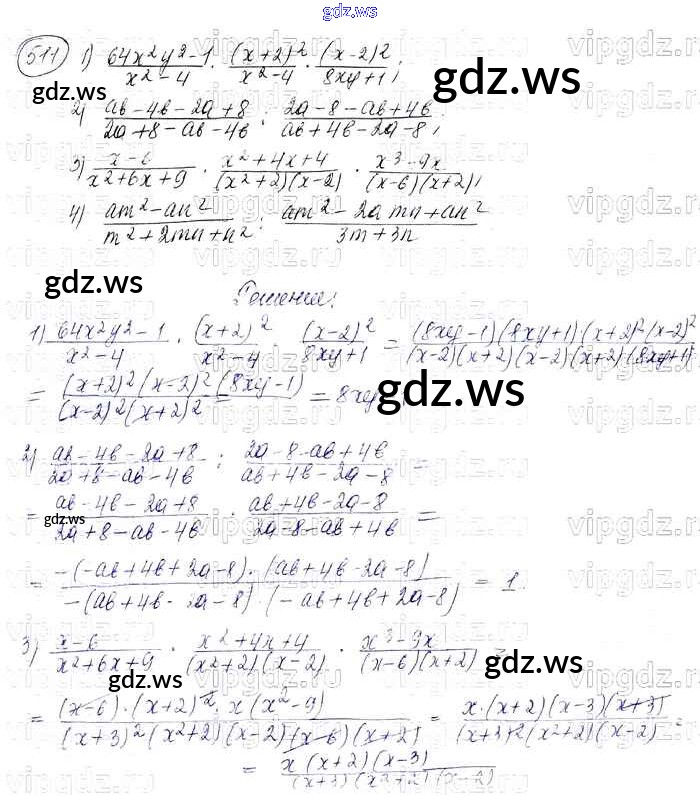 gdz.ws
511 1) (64x²y²-1)/(x²-4) · (x+2)²/(x²-4) · (x-2)²/(8xy+1);
gdz.ws gdz.ws
2) (ab-4b-2a+8)/(2a+8-ab-4b) : (2a-8-ab+4b)/(ab+4b-2a-8);
3) (x-6)/(x²+6x+9) · (x²+4x+4)/((x²+2)(x-2)) · (x³-9x)/((x-6)(x+2));
4) (am²-an²)/(m²+2mn+n²) : (am²-2amn+an²)/(3m+3n)
gdz.ws gdz.ws
Решение:
1) (64x²y²-1)/(x²-4) · (x+2)²/(x²-4) · (x-2)²/(8xy+1) = ((8xy-1)(8xy+1)·(x+2)²(x-2)²)/((x-2)(x+2)(x-2)(x+2)(8xy+1)) =
= ((x+2)²(x-2)²(8xy-1))/((x-2)²(x+2)²) = = 8xy
gdz.ws gdz.ws
2) (ab-4b-2a+8)/(2a+8-ab-4b) : (2a-8-ab+4b)/(ab+4b-2a-8) =
= (ab-4b-2a+8)/(2a+8-ab-4b) · (ab+4b-2a-8)/(2a-8-ab+4b) =
gdz.ws gdz.ws
= (-(-ab+4b+2a-8)·(ab+4b-2a-8))/(-(ab+4b-2a-8)·(-ab+4b+2a-8)) = 1.
3) (x-6)/(x²+6x+9) · (x²+4x+4)/((x²+2)(x-2)) · (x³-9x)/((x-6)(x+2)) =
gdz.ws gdz.ws
= ((x-6)·(x+2)²·x(x²-9))/((x+3)²(x²+2)(x-2)(x-6)(x+2)) = (x·(x+2)(x-3)(x+3))/((x+3)²(x²+2)(x-2)) =
= (x(x+2)(x-3))/((x+3)(x²+2)(x-2))